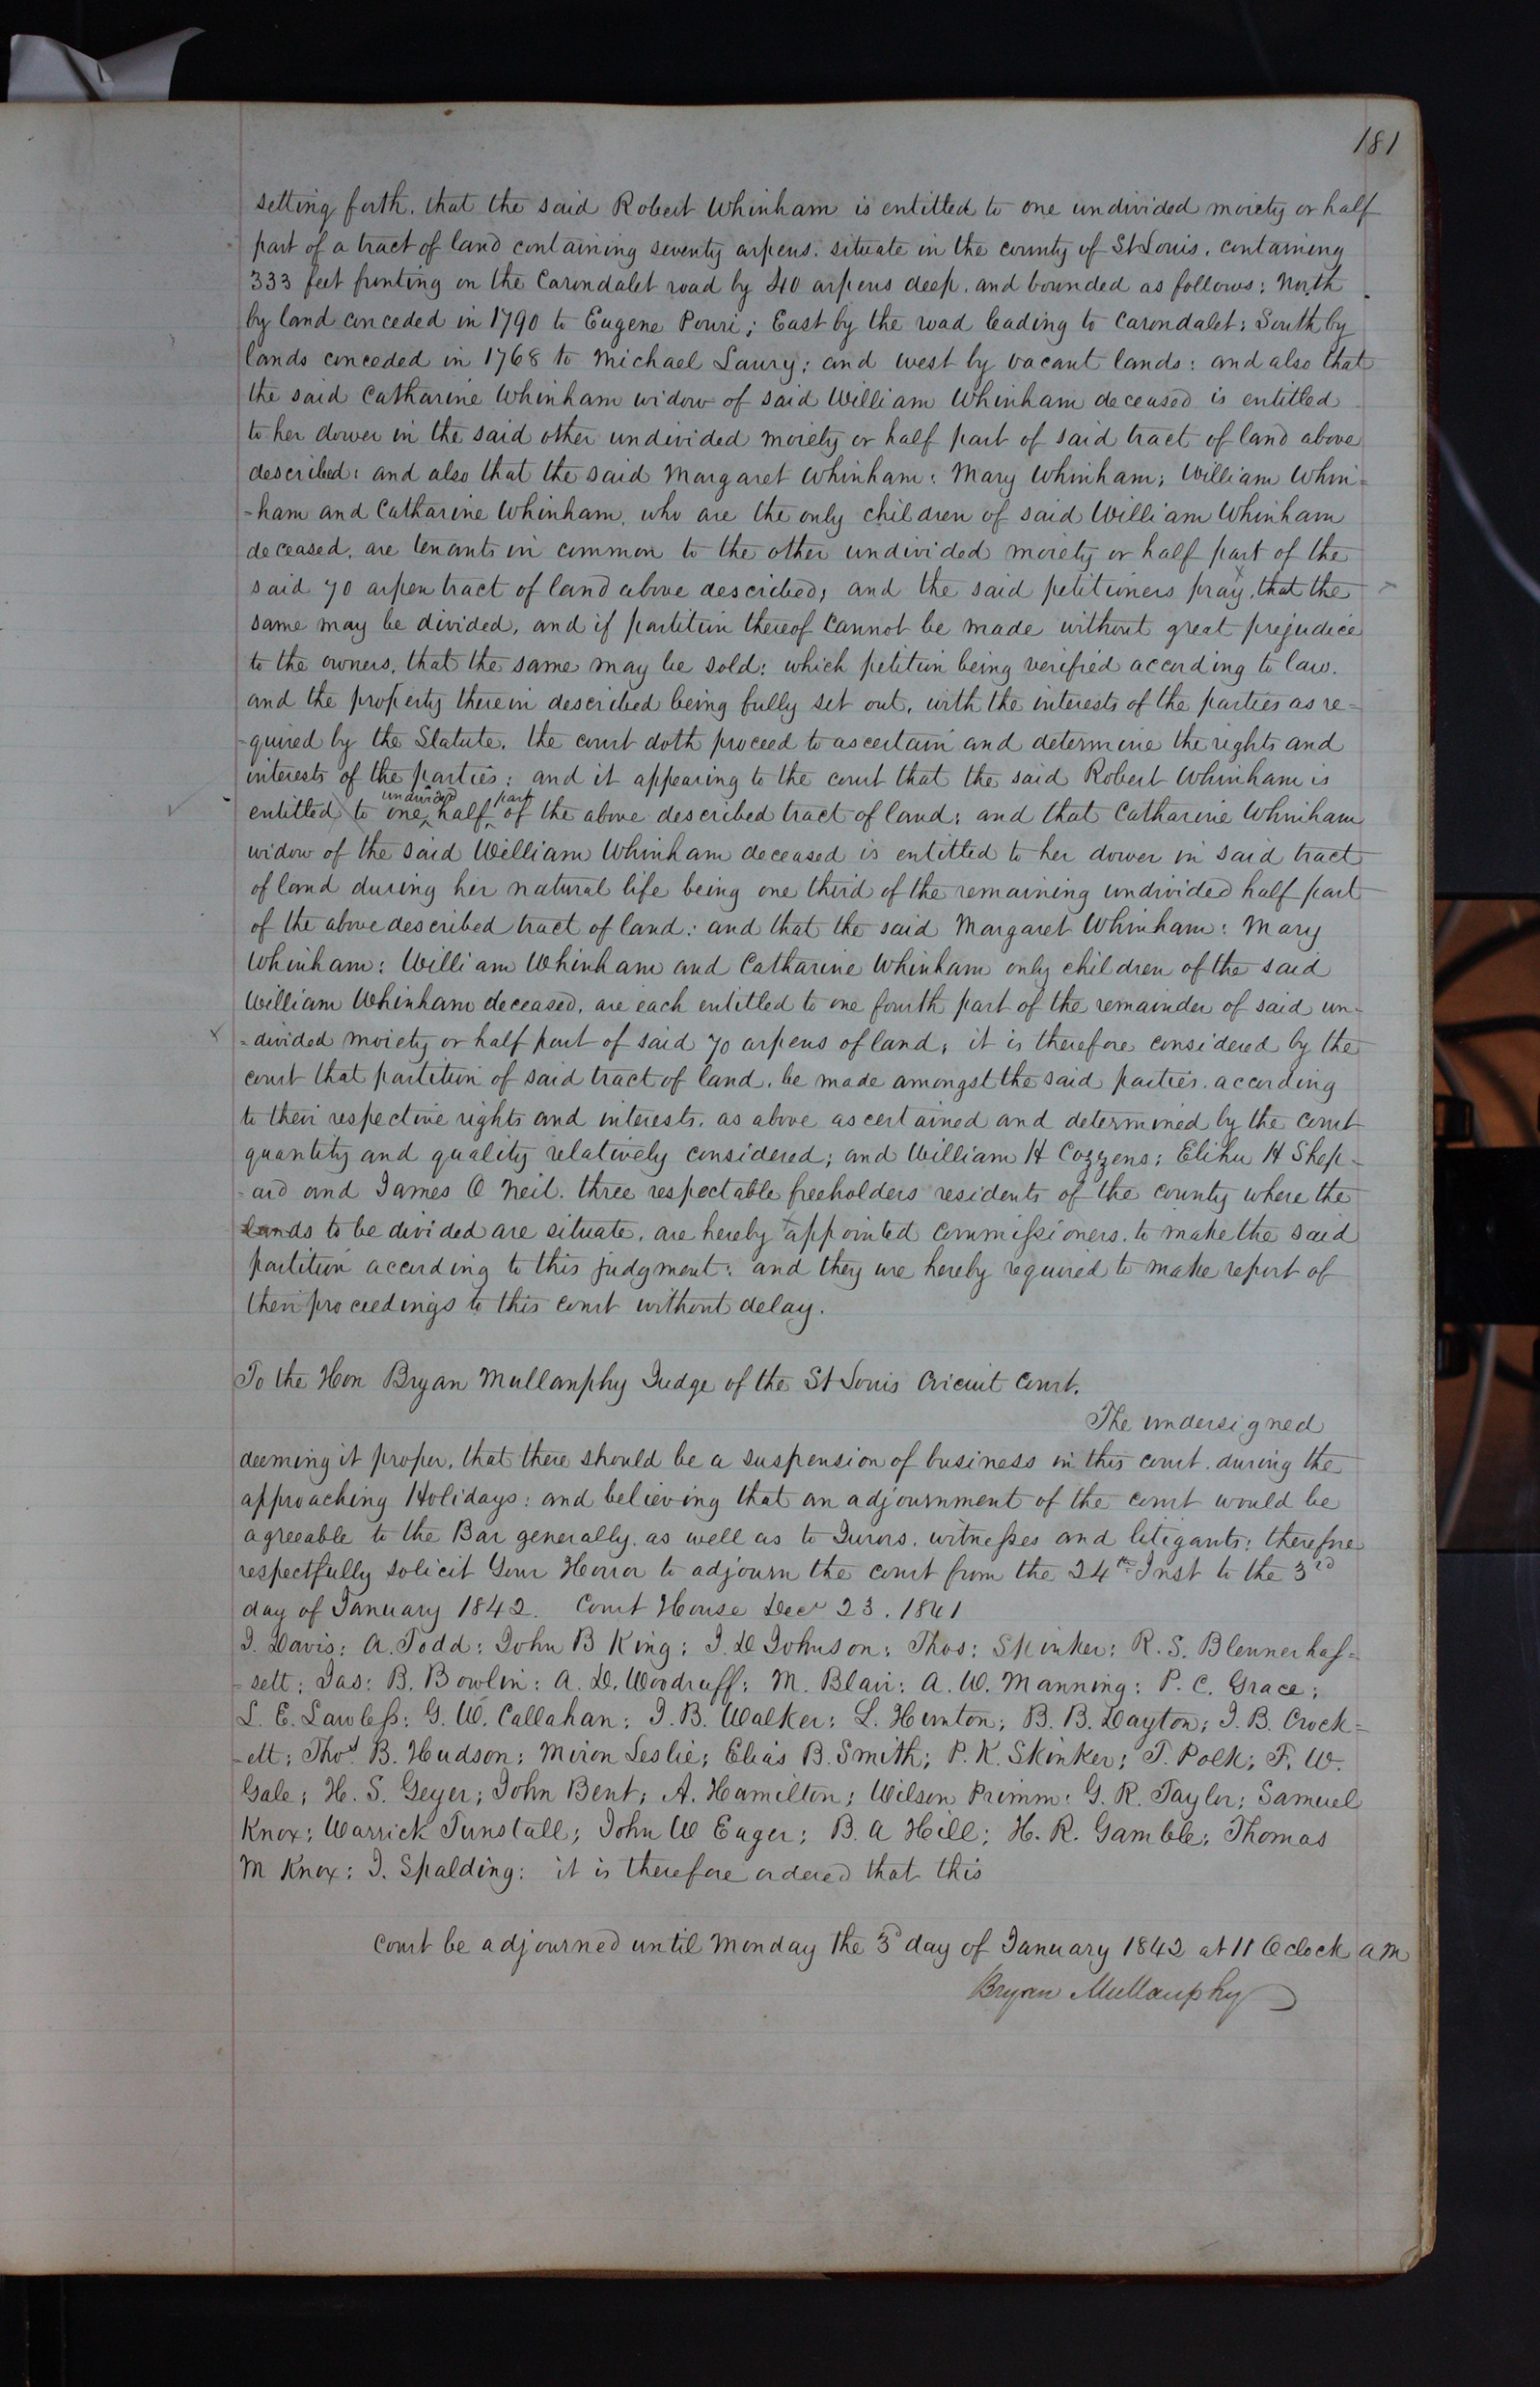 181
setting forth, that the said Robert Whinham is entitled to one undivided moiety or half
part of a tract of land containing seventy arpens. situate in the county of St Louis, containing
333 feet fronting on the Carondalet road by 40 arpens deep, and bounded as follows: North
by land conceded in 1790 to Eugene Pouri; East by the road leading to Carondalet; South by
lands conceded in 1768 to Michael Laury; and west by vacant lands: and also that
the said Catharine Whinham widow of said William Whinham deceased is entitled
to her dower in the said other undivided moiety or half part of said tract of land above
described: and also that the said Margaret Whinham: Mary Whinham; William Whin=
-ham and Catharine Whinham, who are the only children of said William Whinham
deceased, are tenants in common to the other undivided moiety or half part of the
said 70 arpen tract of land above described; and the said petitioners pray, that the
same may be divided, and if partition thereof cannot be made without great prejudice
to the owners, that the same may be sold: which petition being verified according to law.
and the property therein described being fully set out, with the interests of the parties as re=
-quired by the Statute, the court doth proceed to ascertain and determine the rights and
interests of the parties: and it appearing to the court that the said Robert Whinham is
entitled to one undivided half part of the above described tract of land; and that Catharine Whinham
widow of the said William Whinham deceased is entitled to her dower in said tract
of land during her natural life being one third of the remaining undivided half part
of the above described tract of land: and that the said Margaret Whinham: Mary
Whinham: William Whinham and Catharine Whinham only children of the said
William Whinham deceased, are each entitled to one fourth part of the remainder of said un-
=divided moiety or half part of said 70 arpens of land; it is therefore considered by the
court that partition of said tract of land, be made amongst the said parties. according
to their respective rights and interests, as above ascertained and determined by the court
quantity and quality relatively considered; and William H Cozzens; Elihu H Shep-
=ard and James O Neil. three respectable freeholders residents of the county where the
lands to be divided are situate, are hereby appointed commissioners, to make the said
partition according to this judgment: and they are hereby required to make report of
their proceedings to this court without delay.
To the Hon Bryan Mullanphy Judge of the St Louis Circuit Court.
The undersigned
deeming it proper, that there should be a suspension of business in this court during the
approaching Holidays: and believing that an adjournment of the court would be
agreeable to the Bar generally, as well as to Jurors, witnesses and litigants; therefore
respectfully solicit Your Honor to adjourn the court from the 24th Inst to the 3rd
day of January 1842. Court House Decr 23, 1841
J. Davis: A. Todd: John B King; J. D Johnson; Thos: Skinker: R. S. Blennerhas=
=sett; Jas: B. Bowlin: A. D. Woodruff; M. Blair: A. W. Manning: P. C. Grace;
L. E. Lawless: G. W. Callahan; J. B. Walker; L. Hunton; B. B. Dayton; J. B. Crock=
-ett; Thos B. Hudson; Miron Leslie; Elias B. Smith; P. K. Skinker; T. Polk; F. W.
Gale; H. S. Geyer; John Bent; A. Hamilton; Wilson Primm: G. R. Taylor; Samuel
Knox; Warrick Tunstall; John W Eager; B. A Hill; H. R. Gamble; Thomas
M Knox; J. Spalding: it is therefore ordered that this
Court be adjourned until Monday the 3d day of January 1842 at 11 Oclock a m
Bryan Mullanphy